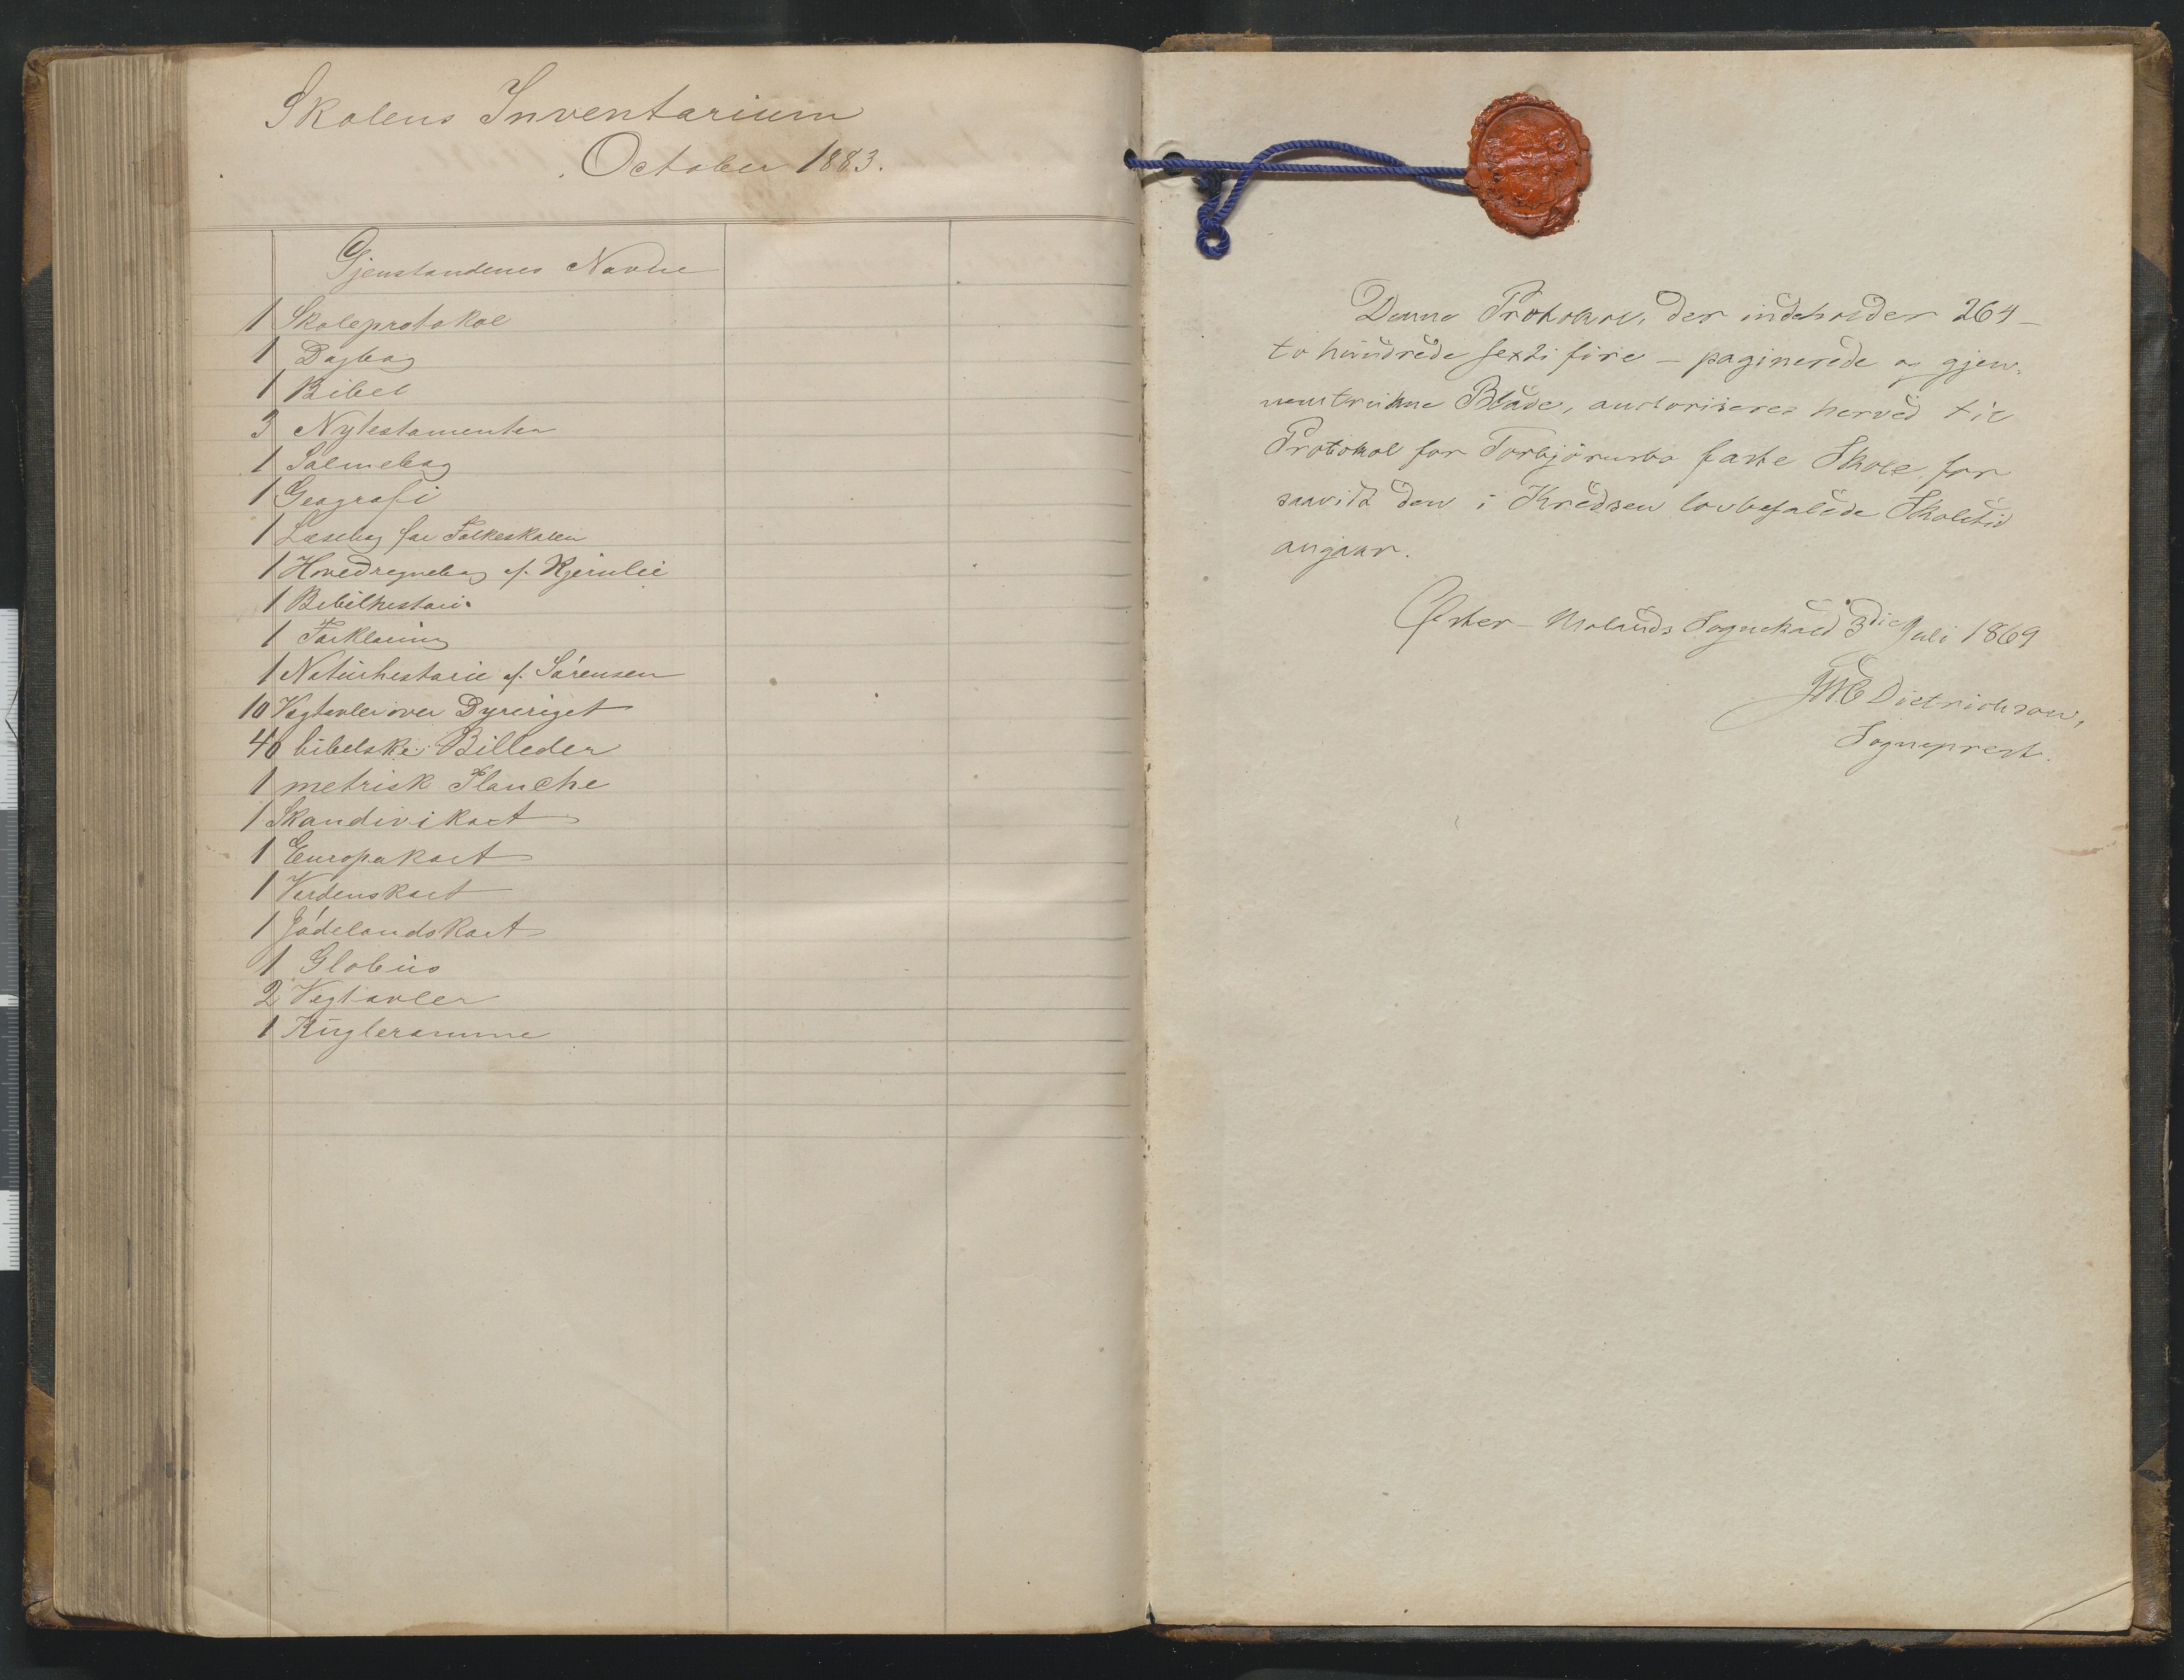 Skolens Inventarium
October 1883.
Gjenstandenes Navne
1 Skoleprotokol
1 Dagbog
1 Bibel
3 Nytestamenter
1 Salmebog
1 Geografi
1 Læsebog for Folkeskolen
1 Hovedregnebog af Kjerulff
1 Bibelhistori
1 Forklaring
1 Naturhistorie af Sörensen
10 Vegtavler over Dyreriget
40 bibelske Billeder
1 metrisk Planche
1 Skandivikart
1 Europakart
1 Verdenskart
1 Jödelandskart
1 Globus
2 Vegtavler
1 Kugleramme
Denne Protokol, der indeholder 264 –
to hundrede sexti fire – paginerede og gjen-
nemtrukne Blade, auctoriseres herved til
Protokol for Torbjörnsbo faste Skole for
saavidt den i Kredsen lovbefalede Skoletid
angaar.
Öster-Molands Sognekald 3die Juli 1869
JMC Dietrichson,
Sogneprest.